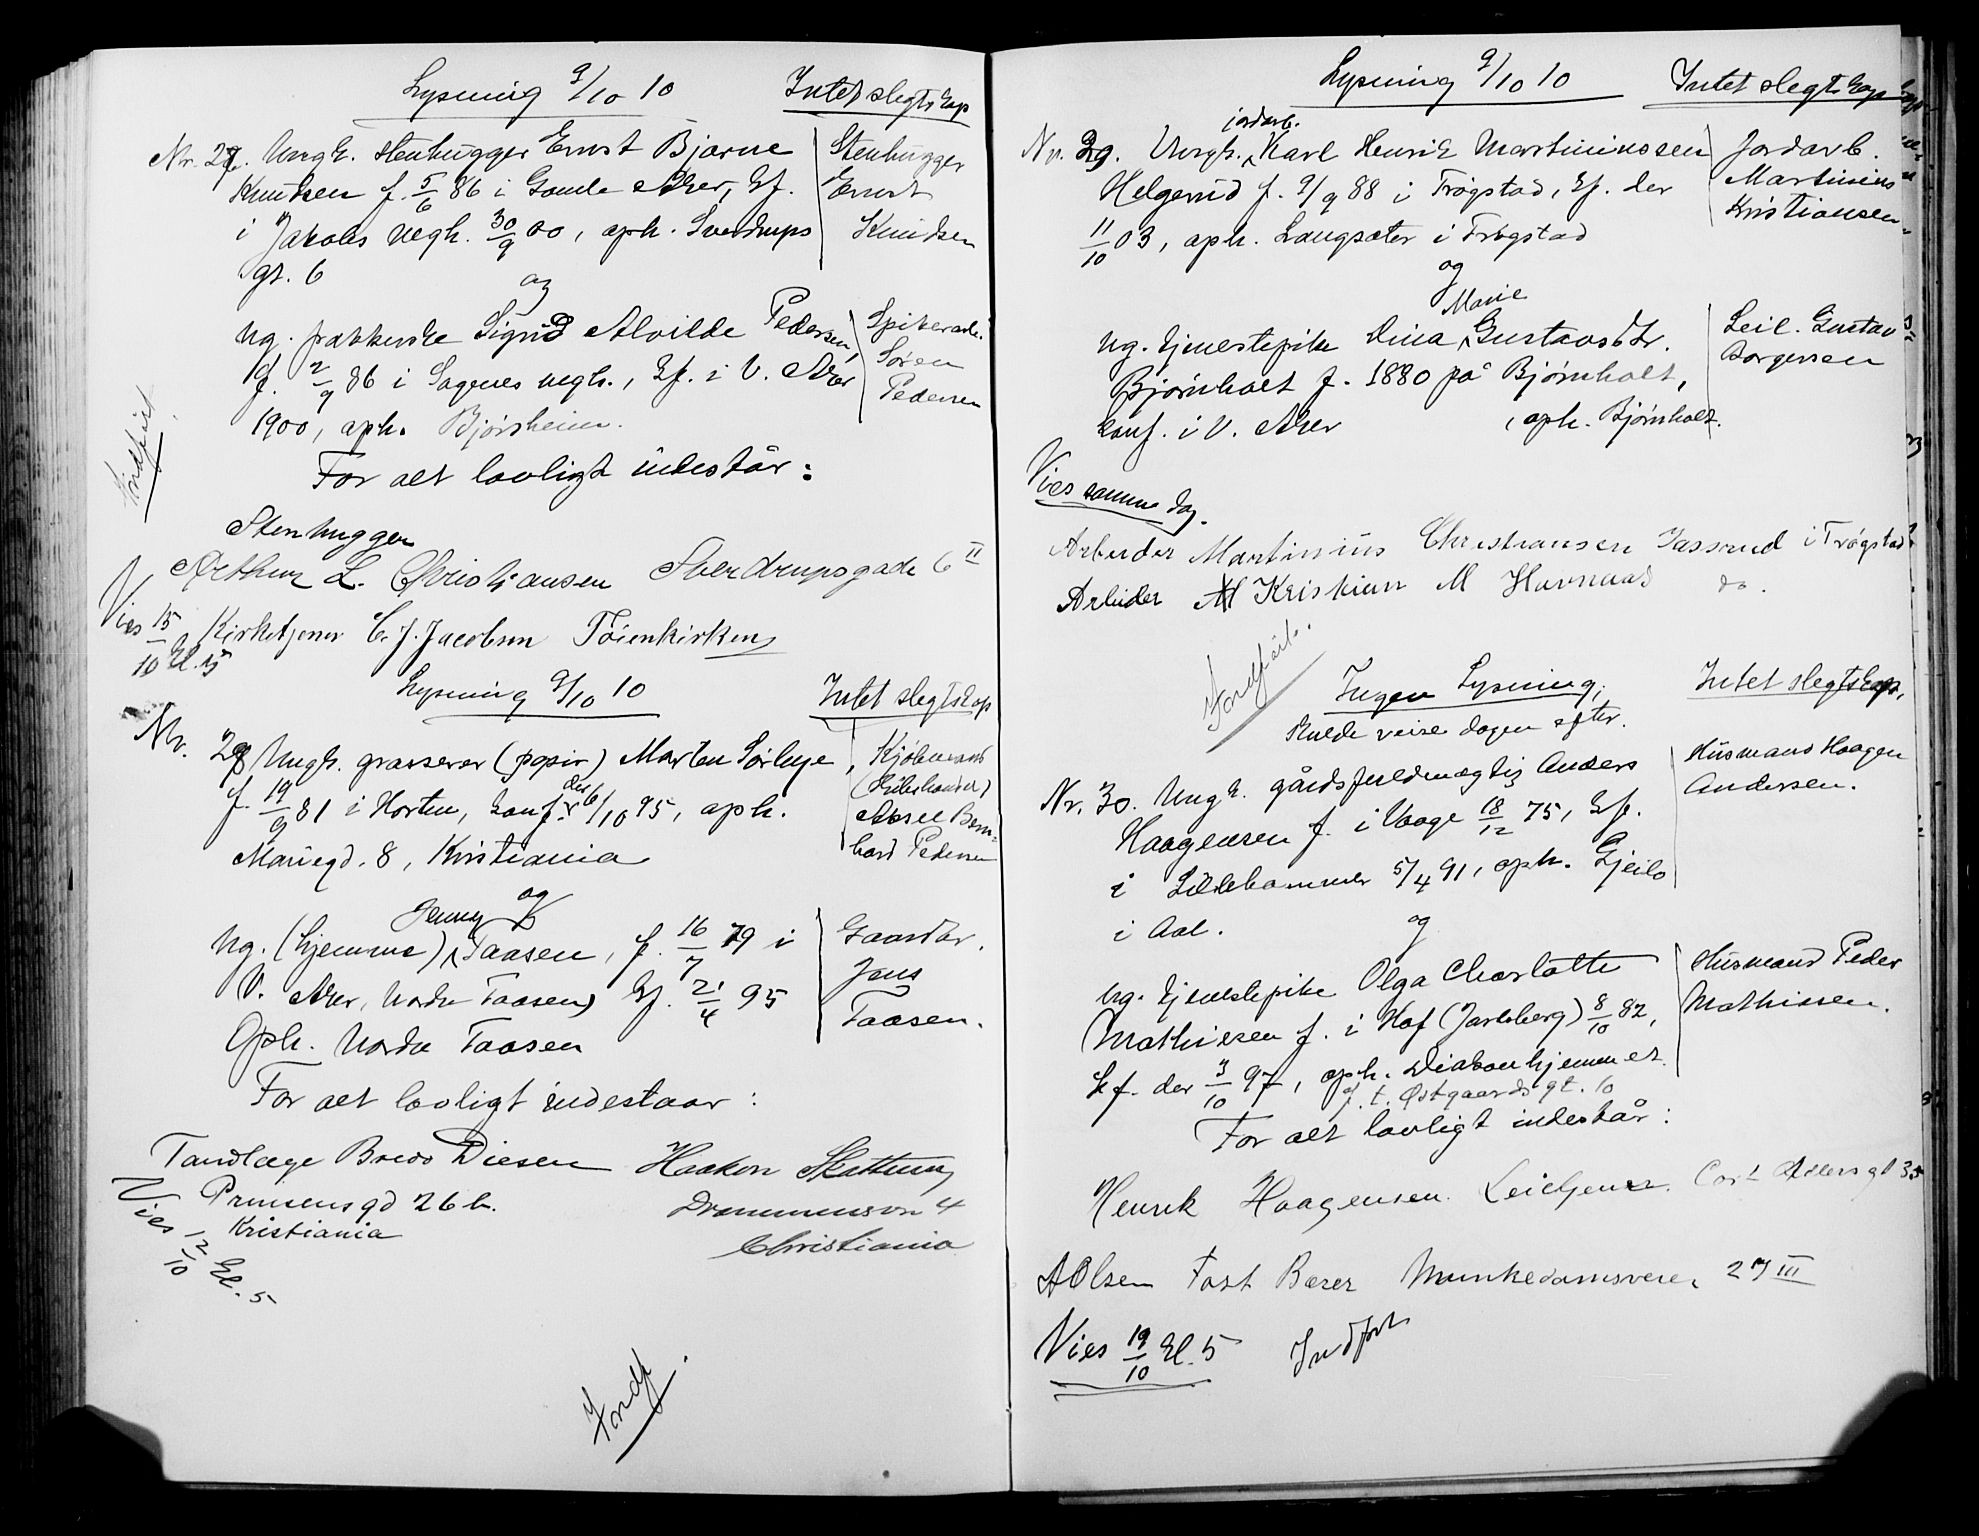 Lysning 9/10 10 Intet slegtskap
Nr. 27. Ungk. stenhugger Ernst Bjarne
Knudsen f. 5/6 86 i Gamle Aker, kf.
i Jakobs megh. 30/9 00, oph. Sverdrups
gt. 6
Stenhugger
Ernst
Knudsen
og
ug. pakkerske Sigrid Alvilde Pedersen,
f. 2/9 86 i Sagenes megh., kf. i V. Aker
1900, oph. Bjørsheim.
Spikerarb.
Søren
Pedersen
For alt lovligt indestår:
Indført
Stenhugger
Arthur L. Christiansen Sverdrupsgade 6 II
Kirketjener C. J. Jacobsen Tøienkirken
Vies 15/10 kl. 5
Lysning 9/10 10 Intet slegtskap
Nr. 28 Ungk. grosserer (papir) Morten Sørluje,
f. 19/9 81 i Horten, konf. der 6/10 95, oph.
Mariegd. 8, Kristiania
Kjøbmand
Aksel Bern=
hard Pedersen
og
ug. (hjemme) Jenny Taasen, f. 16/7 79 i
V. Aker, Nordre Taasen, kf. 21/4 95
Oph. Nordre Taasen
Gaardbr.
Jens
Taasen.
For alt lovligt indestaar:
Tandlæge Bredo Diesen
Prinsensgd 26 b.
Kristiania
Haakon Skattum
Drammensvn 4
Christiania
Vies 12/10 kl. 5
Indf.
Lysning 9/10 10 Intet slegtskap
Nr. 29. Ungk. jordarb. Karl Henrik Martiniussen
Helgerud f. 9/9 88 i Trøgstad, kf. der
11/10 03, oph. Langsæter i Trøgstad
Jordarb.
Martinius
Kristiansen
og
ug. tjenestepike Lina Marie Gustavsdtr.
Bjørnholt f. 1880 på Bjørnholt,
konf. i V. Aker, oph. Bjørnholt.
Leil. Gustav
Borgersen
Vies samme dag.
Arbeider Martinius Christiansen i Trøgstad
Arbeider Kristian M Havnaas do.
Indført.
Ingen Lysning, Intet slegtskap.
skulde reise dagen efter.
Nr. 30. Ungk. gårdsfuldmægtig Anders
Haagensen f. i Vaage 18/12 75, kf.
i Lillehammer 5/4 91, oph. Gjeilo
i Aal.
Husmand Haagen
Andersen.
og
ug. tjenestepike Olga Charlotte
Mathiesen f. i Hof (Jarlsberg) 8/10 82,
kf. der 3/10 97, oph. Diakonhjemmet
f. t. Østgaardsgt. 10
Husmand Peder
Mathisen.
For alt lovligt indestår:
Henrik Haagensen. Cort Adelersgt 35
A Olsen Fast Bærer Munkedamsveien 27 III
Vies 19/10 kl. 5 Indført